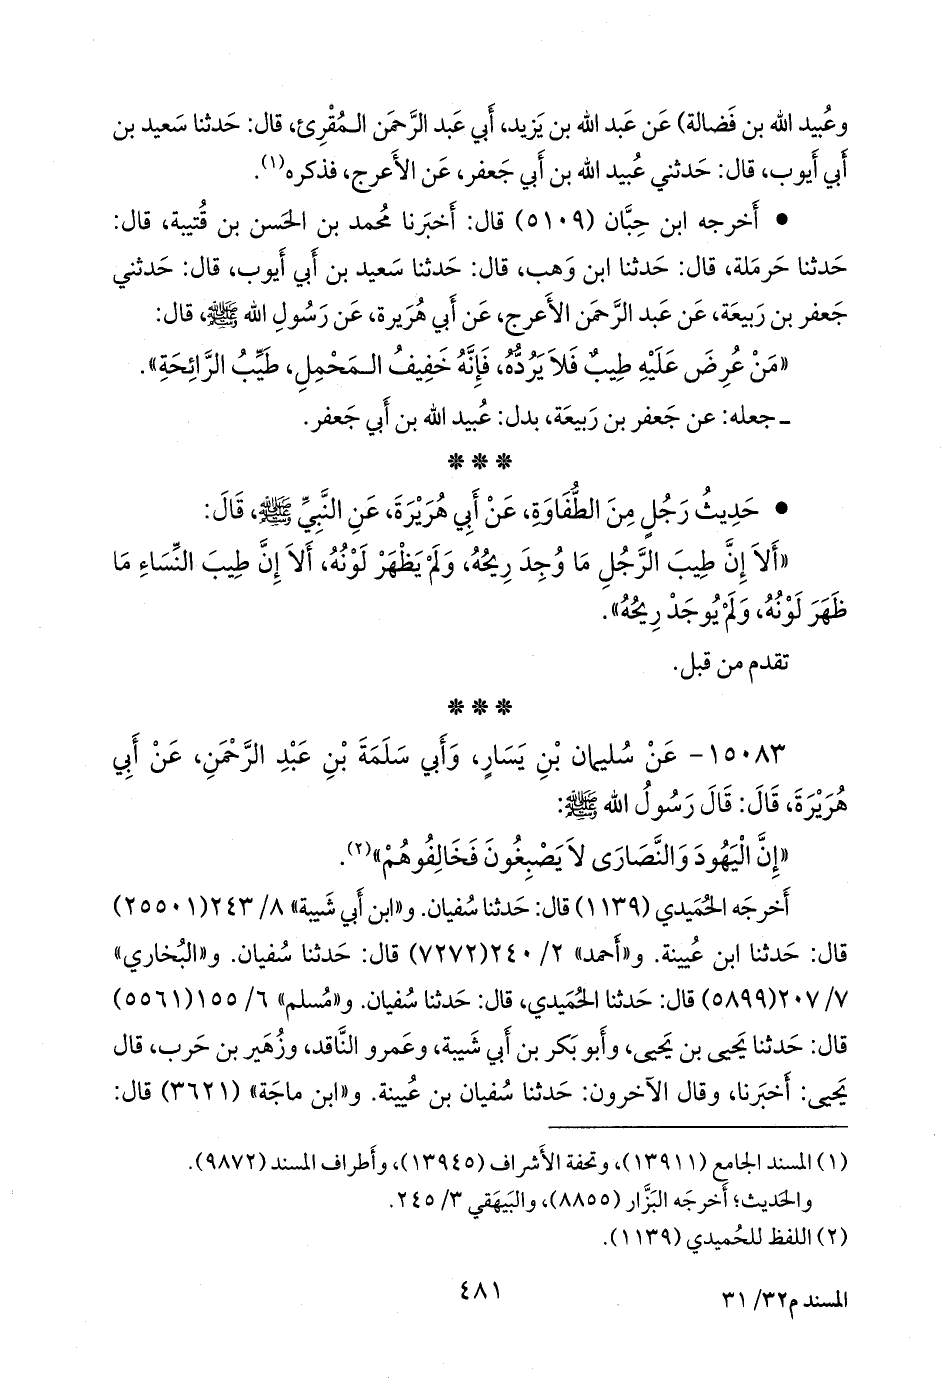 وعُبيد الله بن فَضالة) عَن عَبد الله بن يَزيد، أَبي عَبد الرَّحمَن المُقْرِئ، قال: حَدثنا سَعيد بن
أَبي أَيوب، قال: حَدثني عُبيد الله بن أَبي جَعفر، عَن الأَعرج، فذكره(١).
• أَخرجه ابن حِبَّان (٥١٠٩) قال: أَخبَرنا مُحمد بن الحَسن بن قُتيبة، قال:
حَدثنا حَرملة، قال: حَدثنا ابن وَهب، قال: حَدثنا سَعيد بن أَبي أَيوب، قال: حَدثني
جَعفر بن رَبيعَة، عَن عَبد الرَّحمَن الأَعرج، عَن أَبي هُرَيرة، عَن رَسُولِ الله ﷺ، قال:
«مَنْ عُرِضَ عَلَيْهِ طِيبٌ فَلاَ يَرُدُّهُ، فَإِنَّهُ خَفِيفُ الـمَحْمِلِ، طَيِّبُ الرَّائِحَةِ».
ـ جعله: عن جَعفر بن رَبيعَة، بدل: عُبيد الله بن أَبي جَعفر.
* * *
• حَدِيثُ رَجُلٍ مِنَ الطُّفَاوَةِ، عَنْ أَبِي هُرَيْرَةَ، عَنِ النَّبِيِّ ﷺ، قَالَ:
«أَلاَ إِنَّ طِيبَ الرَّجُلِ مَا وُجِدَ رِيحُهُ، وَلَمْ يَظْهَرْ لَوْنُهُ، أَلاَ إِنَّ طِيبَ النِّسَاءِ مَا
ظَهَرَ لَوْنُهُ، وَلَمْ يُوجَدْ رِيحُهُ».
تقدم من قبل.
* * *
١٥٠٨٣- عَنْ سُلَيمان بْنِ يَسَارٍ، وَأَبي سَلَمَةَ بْنِ عَبْدِ الرَّحْمَنِ، عَنْ أَبِي
هُرَيْرَةَ، قَالَ: قَالَ رَسُولُ الله ﷺ:
«إِنَّ الْيَهُودَ وَالنَّصَارَى لاَ يَصْبِغُونَ فَخَالِفُوهُمْ»(٢).
أَخرجَه الحُمَيدي (١١٣٩) قال: حَدثنا سُفيان. و«ابن أَبي شَيبة» ٨/ ٢٤٣(٢٥٥٠١)
قال: حَدثنا ابن عُيينة. و«أَحمد» ٢/ ٢٤٠(٧٢٧٢) قال: حَدثنا سُفيان. و«البُخاري»
٧/ ٢٠٧(٥٨٩٩) قال: حَدثنا الحُمَيدي، قال: حَدثنا سُفيان. و«مُسلم» ٦/ ١٥٥(٥٥٦١)
قال: حَدثنا يَحيى بن يَحيى، وأَبو بَكر بن أَبي شَيبة، وعَمرو النَّاقد، وزُهَير بن حَرب، قال
يَحيى: أَخبَرنا، وقال الآخرون: حَدثنا سُفيان بن عُيينة. و«ابن ماجَة» (٣٦٢١) قال:
(١) المسند الجامع (١٣٩١١)، وتحفة الأَشراف (١٣٩٤٥)، وأَطراف المسند (٩٨٧٢).
والحَديث؛ أَخرجَه البَزَّار (٨٨٥٥)، والبَيهَقي ٣/ ٢٤٥.
(٢) اللفظ للحُميدي (١١٣٩).
٤٨١
المسند م٣٢/ ٣١